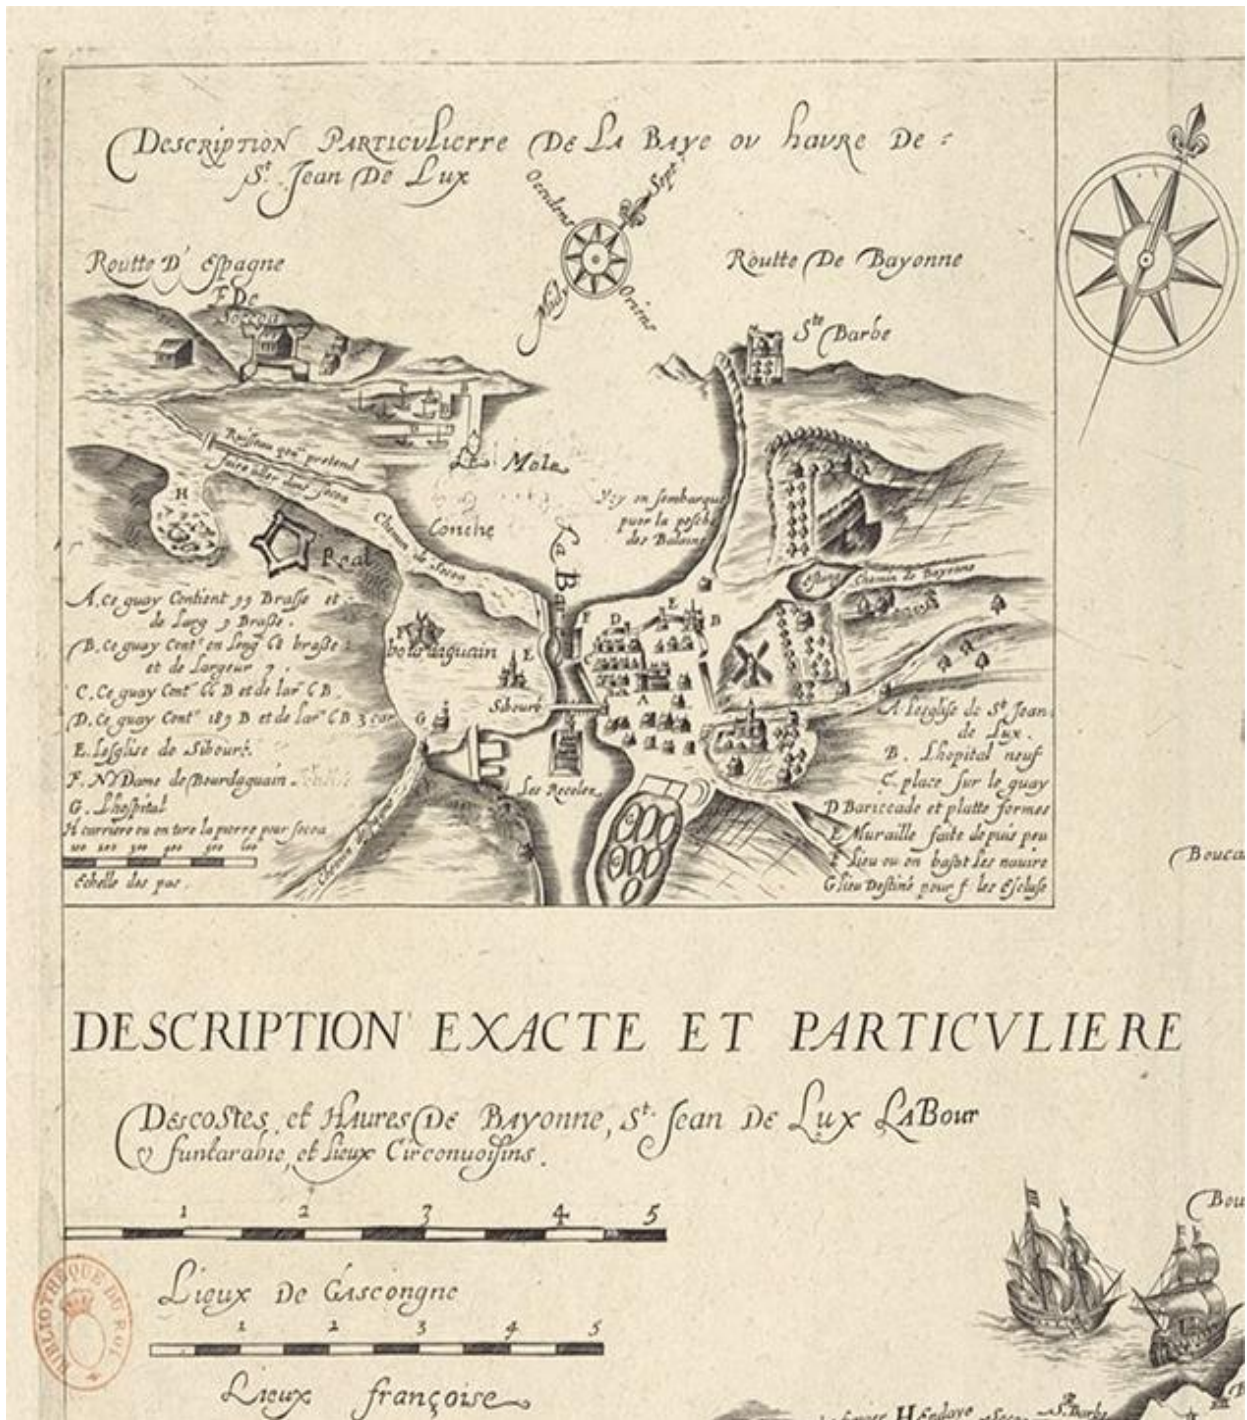 Description Particulierre De La Baye ou havre De :
St. Jean De Lux
Occidens
Sept
Midy
Oriens
Routte D' Espagne
Routte De Bayonne
F De
Ste Barbe
Le Mole
Ruisseau qon pretend
faire aller dans socoa
H
Yzy on sembarque
pour la pesche
des Balaine
Conche
Chemin de Socoa
La Ba
Real
Estang
Chemin de Bayonne
A. Ce quay Contient 99 Brasse et
de Larg 9 Brasse.
B. Ce quay Cont en Long 68 brasse
et de Largeur 7.
C. Ce quay Cont 66 B et de lar 6 B.
D. Ce quay Cont 189 B et de lar 6 B 3 car
E. Lesglise de Sibouré.
F. N Dame de Bourdaguain.
G. Lhospital
H carriere ou on tire la pierre pour socoa
Echelle des pas.
bourdaguain
E
F
D
E
B
Sibouré
A
G
Les Recolez
Chemin de
A Lesglise de St Jean
de Lux.
B. Lhopital neuf
C. place sur le quay
D Bariccade et platte formes
E Muraille faite depuis peu
F lieu ou on bastit les navire
G lieu Destiné pour f. les Escluse
Bouca
DESCRIPTION EXACTE ET PARTICVLIERE
Des costes, et Havres De Bayonne, St. Jean De Lux LaBour
funtarabie, et Lieux Circonuoisins.
1 2 3 4 5
Lieux De Gascongne
1 2 3 4 5
Lieux françoise
Bou
BIBLIOTHEQUE DU ROI
Hendaye
Socoa
St. Barbe